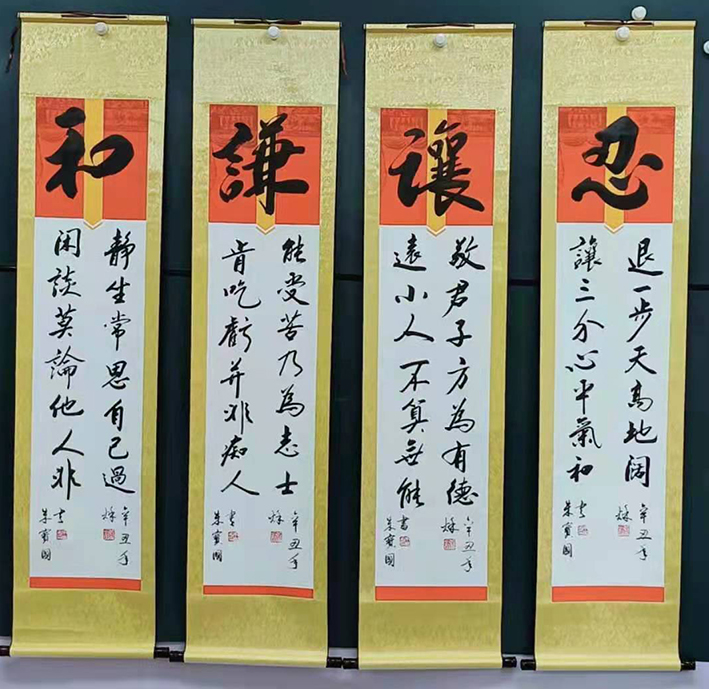 忍
退一步天高地阔
讓三分心平氣和
辛丑年
秋
朱寶國
書
讓
敬君子方為有德
遠小人不算無能
辛丑年
秋
朱寶國
書
謙
能受苦乃為志士
肯吃虧并非痴人
辛丑年
秋
朱寶國
書
和
靜坐常思自己過
闲談莫論他人非
辛丑年
秋
朱寶國
書